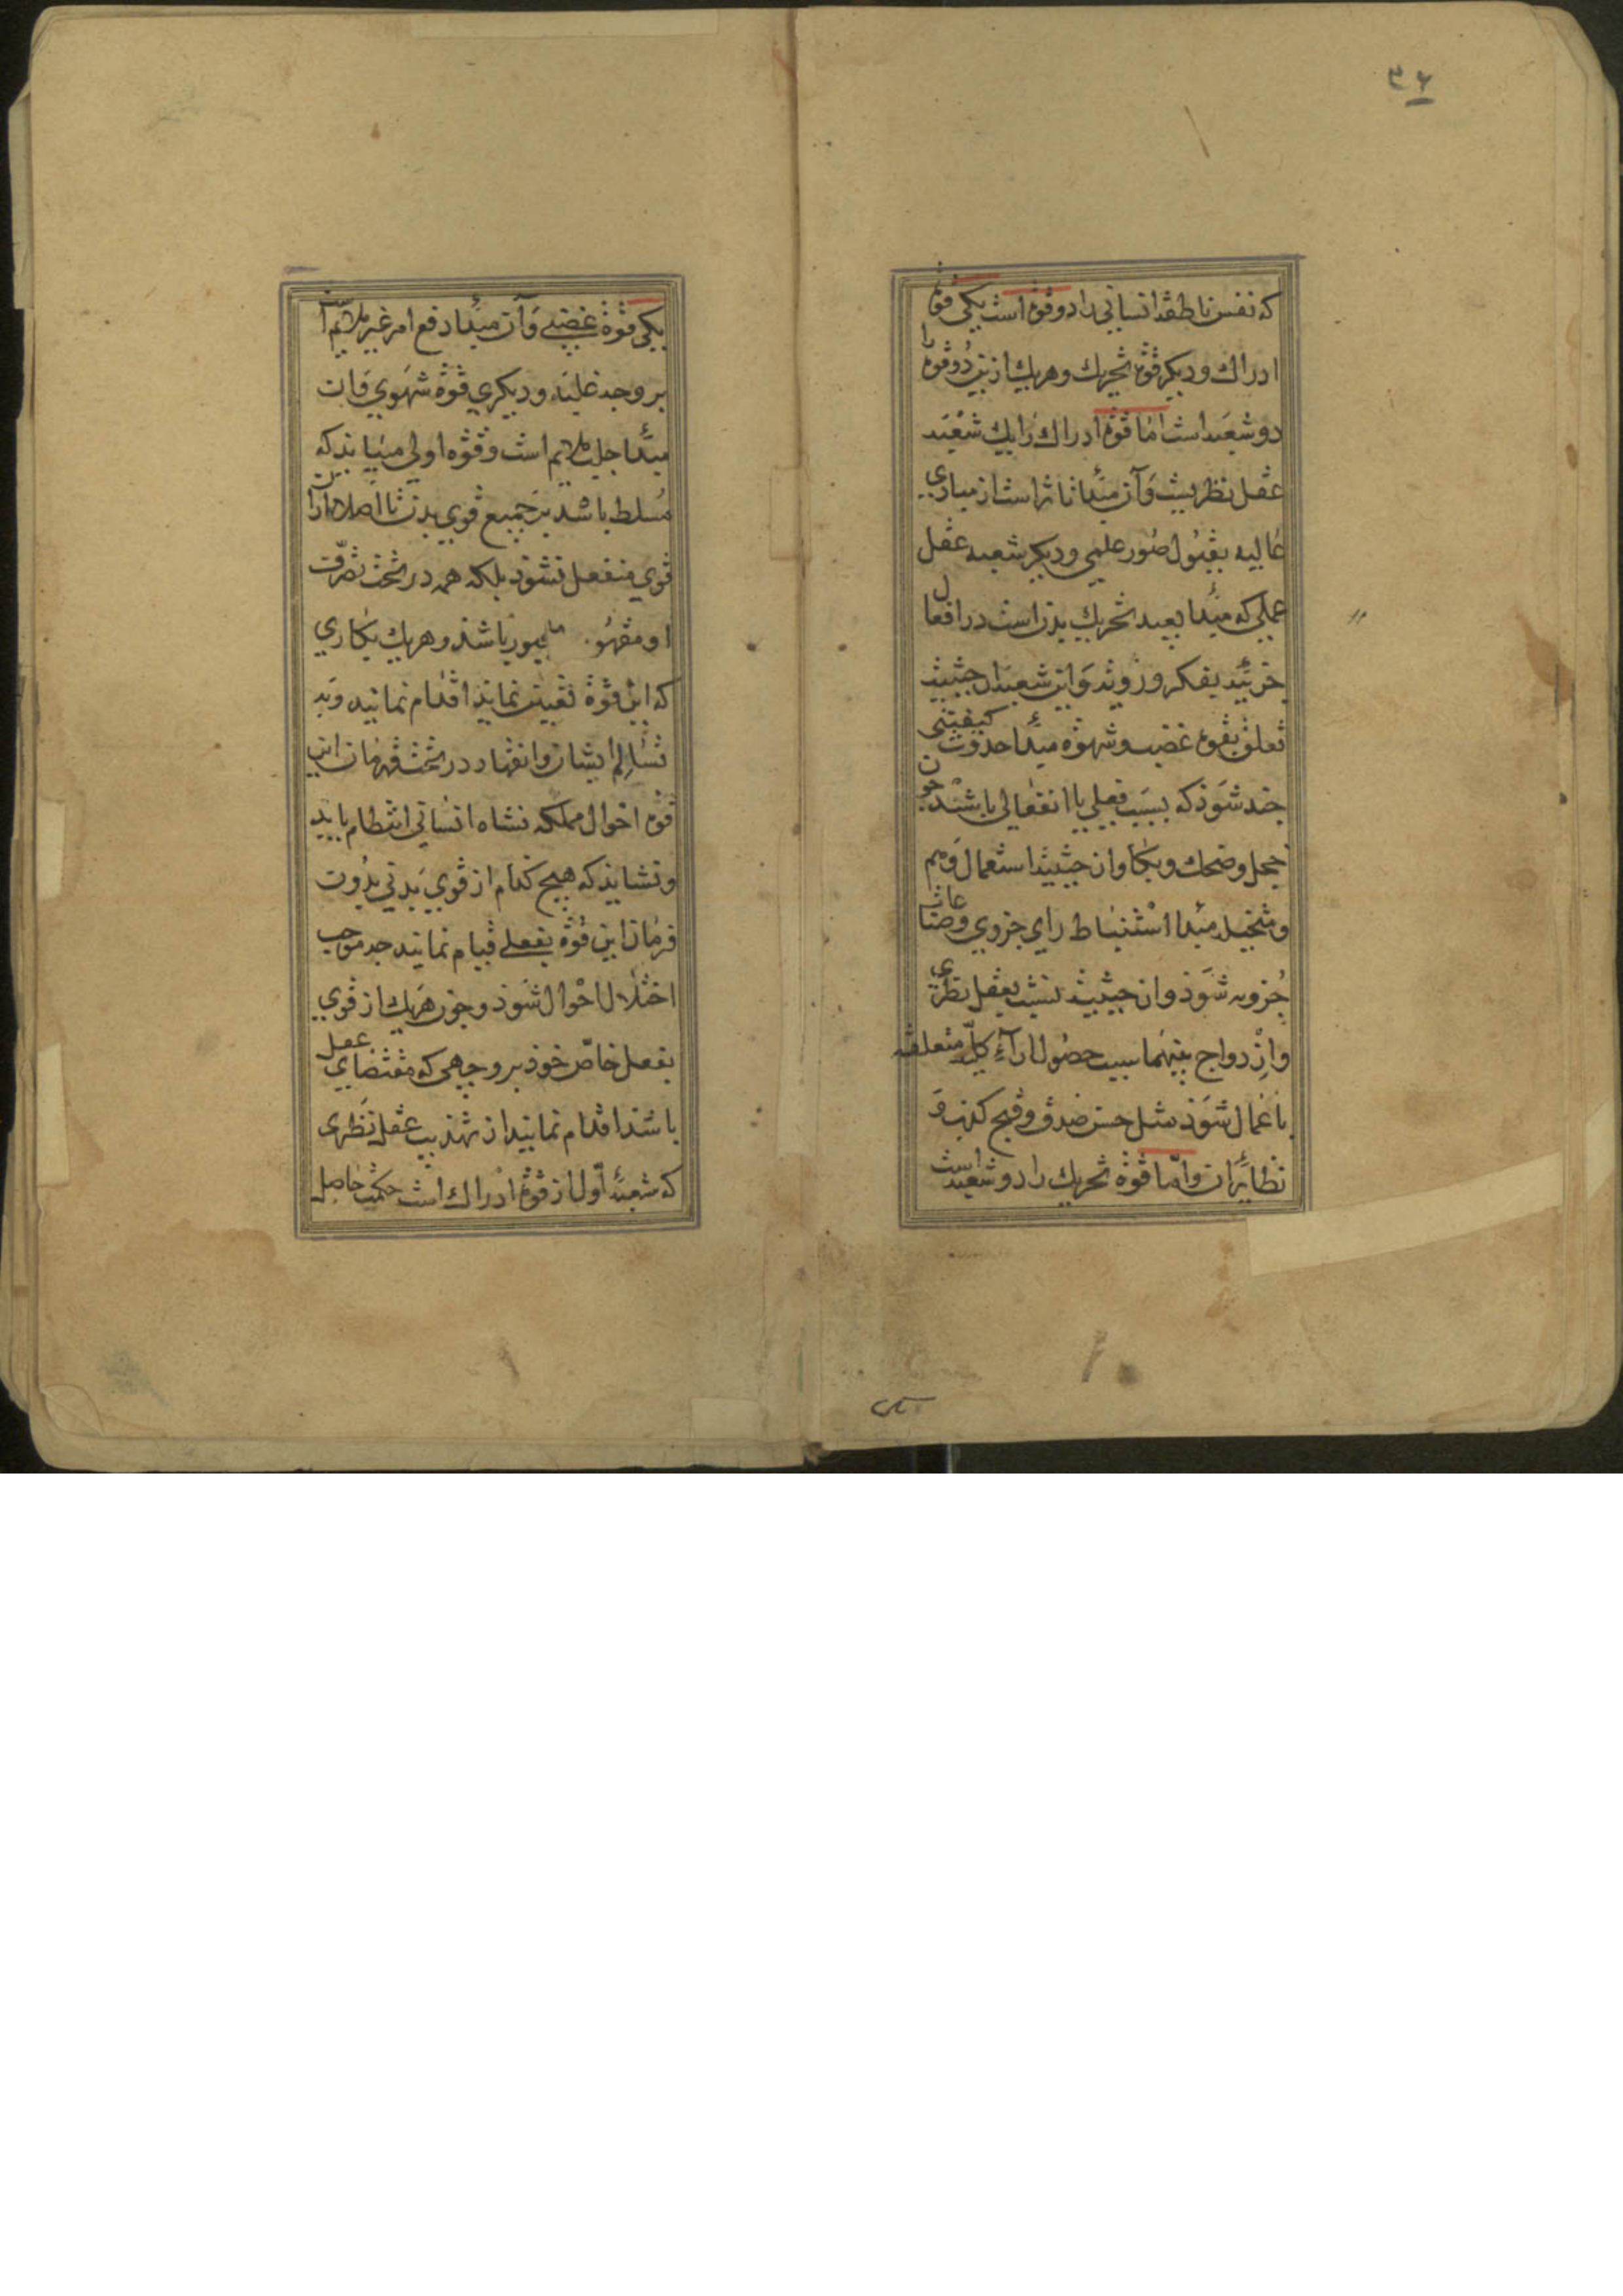 ۳۶
که نفس ناطقه انسانی را دو قوه است یکی قوه
ادراك و دیکر قوه تحریك و هر یك ازین دو قوه را
دو شعبه است اما قوه ادراك را یك شعبه
عقل نظریست و آن مبدأ تاثر است از مبادی
عالیه بقبول صور علمی و دیکر شعبه عقل
عملی که مبدأ بعید تحریك بدن است در افعال
جزئیه بفکر و رویه و این شعبه از حیثیت
تعلق بقوه غضب و شهوة مبدأ حدوث کیفیتی
جند شوذ که بسبب فعلی یا انفعالی باشند جون
خجل و ضحك و بكا و از حیثیت استعمال وهم
و متخیله مبدا استنباط رای جزوی و صناعات
جزویه شوذ و از حیثیت نسبت بعقل نظری
و ازدواج بینهما سبب حصول اراء کلیه متعلقه
باعمال شوذ مثل حسن صدق و قبح کذب و
نظایر ان و اما قوة تحریك را دو شعبه است
یکی قوة غضبی و آن مبدأ دفع امر غیر ملایم است
بر وجه غلبه و دیکری قوة شهوی و ان
مبدأ جلب ملایم است و قوه اولی میباید که
مسلط باشد بر جمیع قوی بدن تا اصلا ازین
قوی منفعل نشوذ بلکه همه در تحت تصرف
او مقهور باشند و هر یك بکاری
که این قوة تعیین نماید اقدام نمایند و به
تسالم ایشان و انقیاد در تحت فرمان این
قوه احوال مملکه نشاه انسانی انتظام یابد
و نشاید که هیچ کدام از قوی بدنی بدون
فرمان این قوة بفعلی قیام نمایند جه موجب
اختلال احوال شوذ و جون هر یك از قوی
بفعل خاص خوذ بر وجهی که مقتضای عقل
باشد اقدام نمایند از تهذیب عقل نظری
که شعبه اول از قوة ادراك است حکمت حاصل